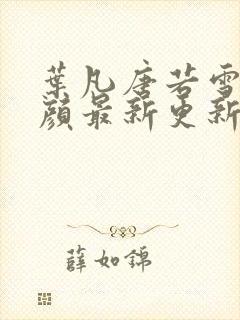 葉凡唐若雪
顔最新更新
薛如錦